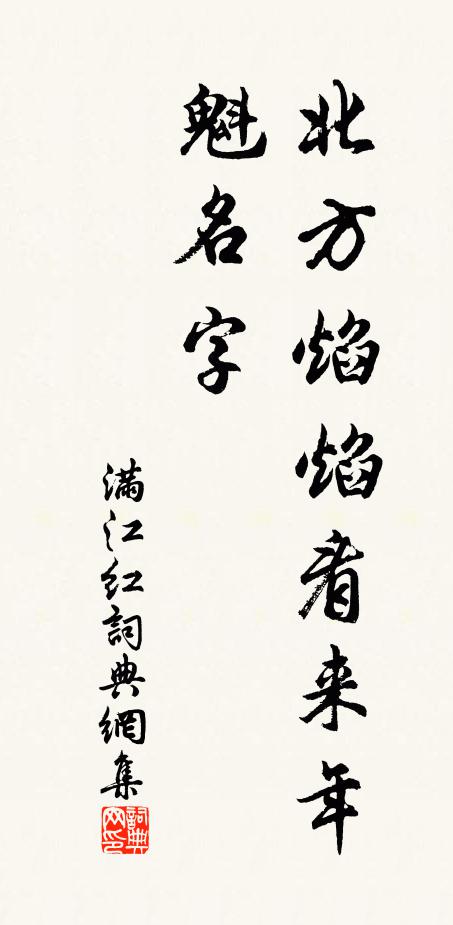 北方焰焰看来年
魁名字
满江红詞典網集
詞典网印